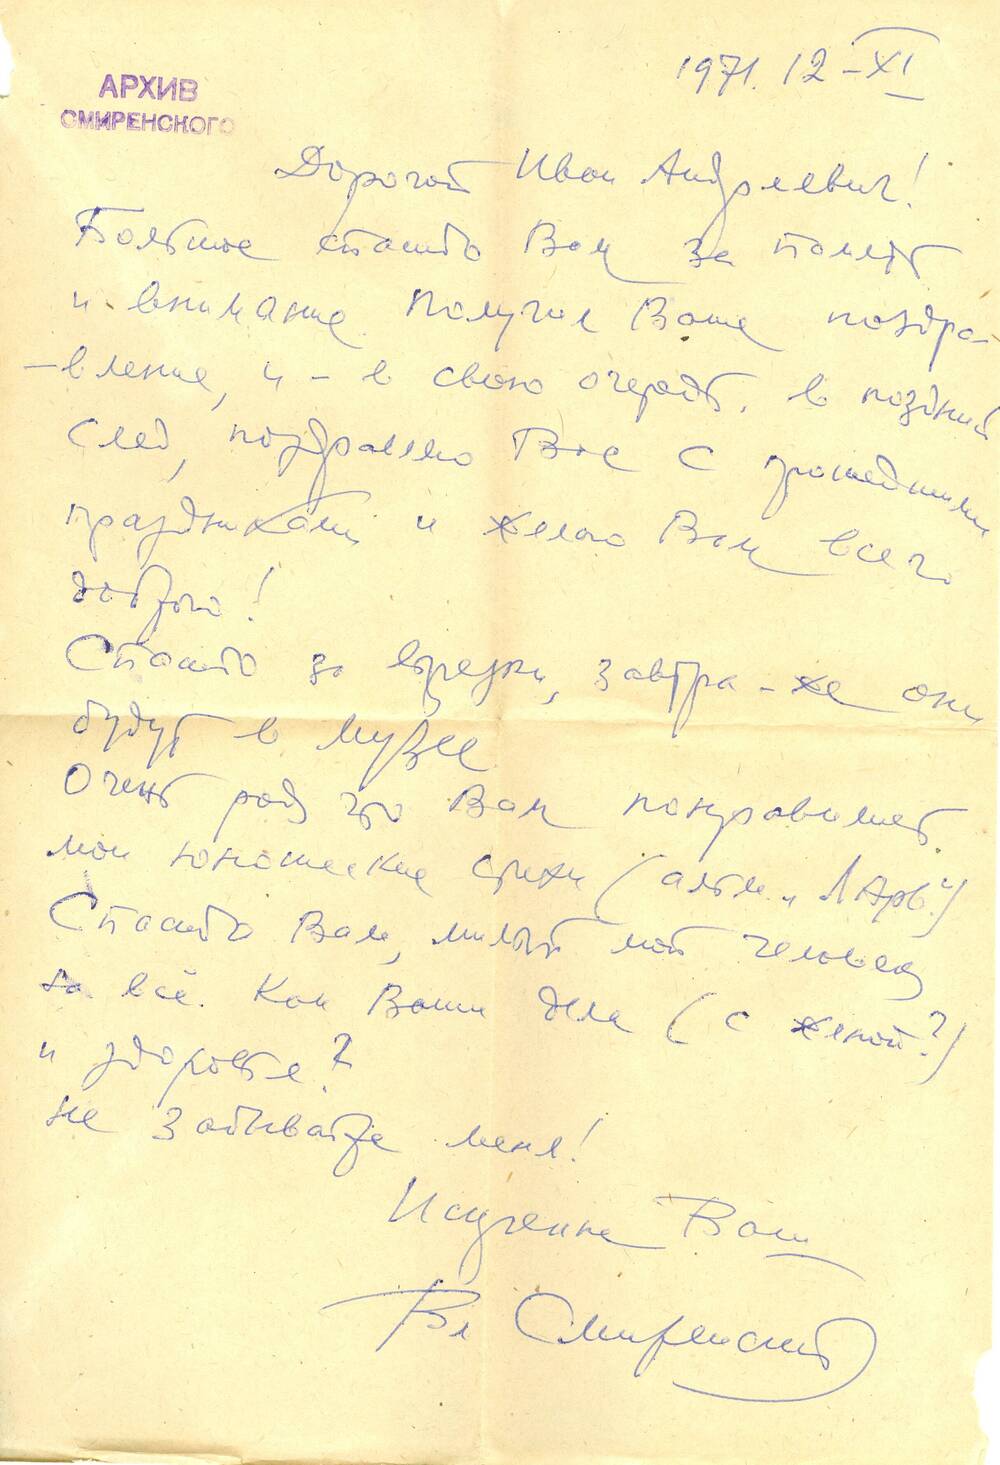 АРХИВ
СМИРЕНСКОГО
1971. 12-XI
Дорогой Иван Андреевич!
Большое спасибо Вам за память
и внимание. Получил Ваше поздра-
-вление, и - в свою очередь, в поздний
след, поздравляю Вас с прошедшими
праздниками и желаю Вам всего
доброго!
Спасибо за вырезки, завтра-же они
будут в музее.
Очень рад что Вам понравились
мои юношеские стихи (альм. „Ларь")
Спасибо Вам, милый мой человек
за всё. Как Ваши дела (с женой?)
и здоровье?
Не забывайте меня!
Искренне Ваш
Вл Смиренский